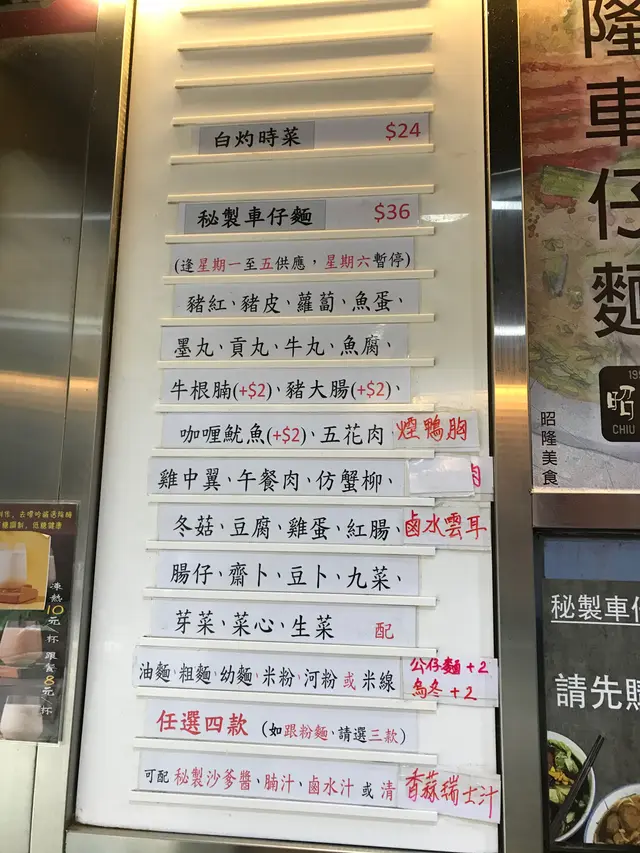 白灼時菜 $24
秘製車仔麵 $36
(逢星期一至五供應，星期六暫停)
豬紅、豬皮、蘿蔔、魚蛋、
墨丸、貢丸、牛丸、魚腐、
牛根腩(+$2)、豬大腸(+$2)、
咖喱魷魚(+$2)、五花肉、煙鴨胸
雞中翼、午餐肉、仿蟹柳、
冬菇、豆腐、雞蛋、紅腸、鹵水雲耳
腸仔、齋卜、豆卜、九菜、
芽菜、菜心、生菜 配
油麵、粗麵、幼麵、米粉、河粉或米線
公仔麵+2
烏冬+2
任選四款 (如跟粉麵、請選三款)
可配秘製沙爹醬、腩汁、鹵水汁 或 清 香蒜瑞士汁
隆車仔麵
昭
CHIU
昭隆美食
秘製車仔
請先購
凍熱10元/杯
跟餐8元/杯
低糖健康